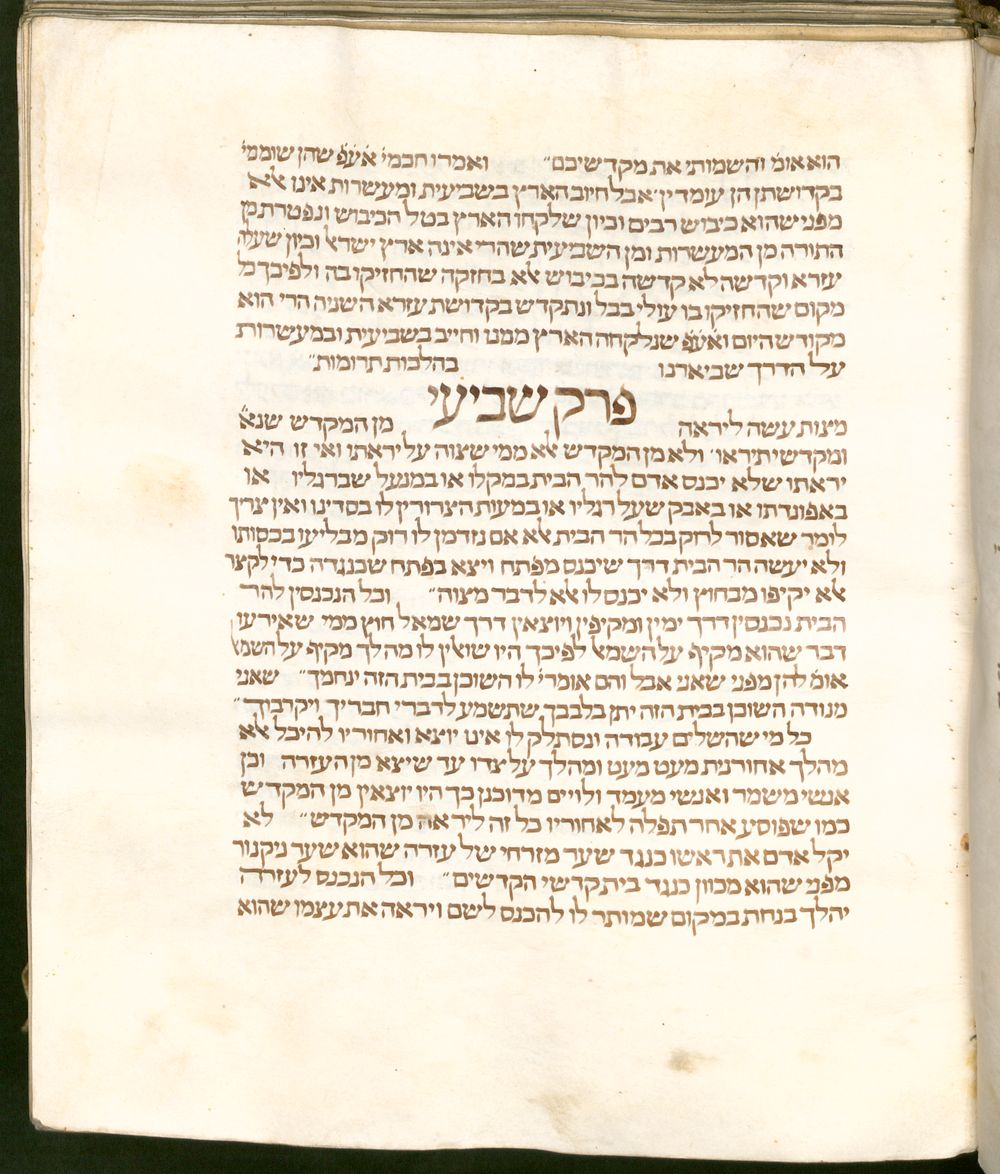 הוא אומ' והשמותי את מקדשיכם" ואמרו חכמי' אע"פ שהן שוממי'
בקדושתן הן עומדין אבל חיוב הארץ בשביעית ומעשרות אינו אלא
מפני שהוא כיבוש רבים וכיון שלקחו הארץ בטל הכיבוש ונפטרת מן
התורה מן המעשרות ומן השביעית שהרי אינה ארץ ישראל וכיון שעלה
עזרא וקדשה לא קדשה בכיבוש אלא בחזקה שהחזיקו בה ולפיכך כל
מקום שהחזיקו בו עולי בבל ונתקדש בקדושת עזרא השניה הרי הוא
מקודש היום ואע"פ שנלקחה הארץ ממנו וחייב בשביעית ובמעשרות
על הדרך שביארנו בהלכות תרומות"
פרק שביעי
מצות עשה ליראה מן המקדש שנא'
ומקדשי תיראו' ולא מן המקדש אלא ממי שצוה על יראתו ואי זו היא
יראתו שלא יכנס אדם להר הבית במקלו או במנעל שברגליו או
באפונדתו או באבק שעל רגליו או במעות הצרורין לו בסדינו ואין צריך
לומר שאסור לרוק בכל הר הבית אלא אם נזדמן לו רוק מבליעו בכסותו
ולא יעשה הר הבית דרך שיכנס מפתח ויצא בפתח שכנגדה כדי לקצר
אלא יקיפו מבחוץ ולא יכנס לו אלא לדבר מצוה" וכל הנכנסין להר
הבית נכנסין דרך ימין ומקיפין ויוצאין דרך שמאל חוץ ממי שאירעו
דבר שהוא מקיף על השמאל לפיכך היו שואלין לו מה לך מקיף על השמאל
אומ' להן מפני שאני אבל והם אומרי' לו השוכן בבית הזה ינחמך" שאני
מנודה השוכן בבית הזה יתן בלבבך שתשמע לדברי חבריך ויקרבוך"
כל מי שהשלים עבודה ונסתלק לו אינו יוצא ואחוריו להיכל אלא
מהלך אחורנית מעט מעט ומהלך על צדו עד שיצא מן העזרה וכן
אנשי משמר ואנשי מעמד ולויים מדוכנן כך היו יוצאין מן המקדש
כמו שפוסע אחר תפלה לאחוריו כל זה ליראה מן המקדש" לא
יקל אדם את ראשו כנגד שער מזרחי של עזרה שהוא שער ניקנור
מפני שהוא מכוון כנגד בית קדשי הקדשים" וכל הנכנס לעזרה
יהלך בנחת במקום שמותר לו להכנס לשם ויראה את עצמו שהוא